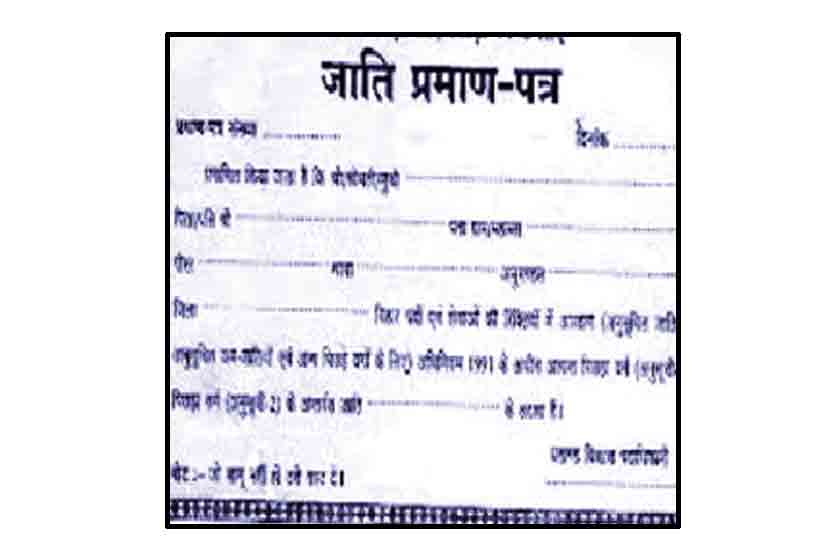 जाति प्रमाण-पत्र
प्रमाण-पत्र संख्या ....................
दिनांक ................
प्रमाणित किया जाता है कि श्री/श्रीमती/सुश्री ................................
पिता/पति श्री ................................ पता ग्राम/मोहल्ला ................................
पोस्ट ................................ थाना ................................ अनुमण्डल ................................
जिला ................................ बिहार पदों एवं सेवाओं की रिक्तियों में आरक्षण (अनुसूचित जाति
अनुसूचित जन-जातियों एवं अन्य पिछड़े वर्गों के लिए) अधिनियम 1991 के अधीन अत्यन्त पिछड़ा वर्ग (अनुसूची
पिछड़ा वर्ग (अनुसूची-2) के अन्तर्गत जाति ................................ के सदस्य हैं।
प्रखण्ड विकास पदाधिकारी
नोट :- जो लागू नहीं हो उसे काट दें।